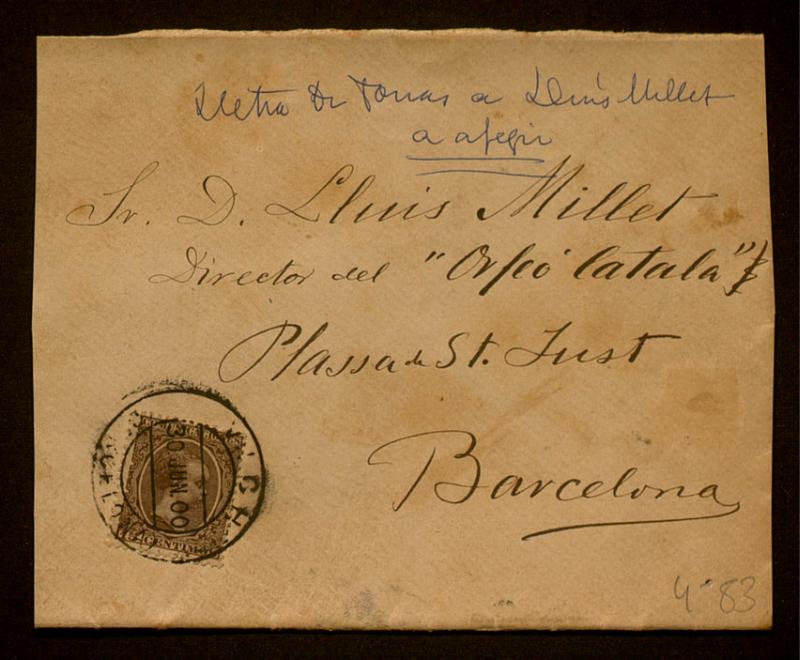 Lletra de Tomas a Lluís Millet
a afegir
Sr. D. Lluis Millet
Director del "Orfeó Catalá"
Plassa de St. Just
Barcelona
VICH
JUN 00
CENTIMOS
4-83